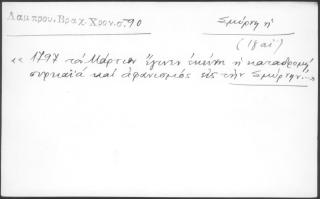 Λαμπρου, Βραχ. Χρον. σ. 90
Σμύρνη ἡ
(18 αἰ)
« 1797 τὸ Μάρτιον ἔγινεν ἐκείνη ἡ καταδρομή,
πυρκαϊά καὶ ἀφανισμός εἰς τὴν Σμύρνην.. »